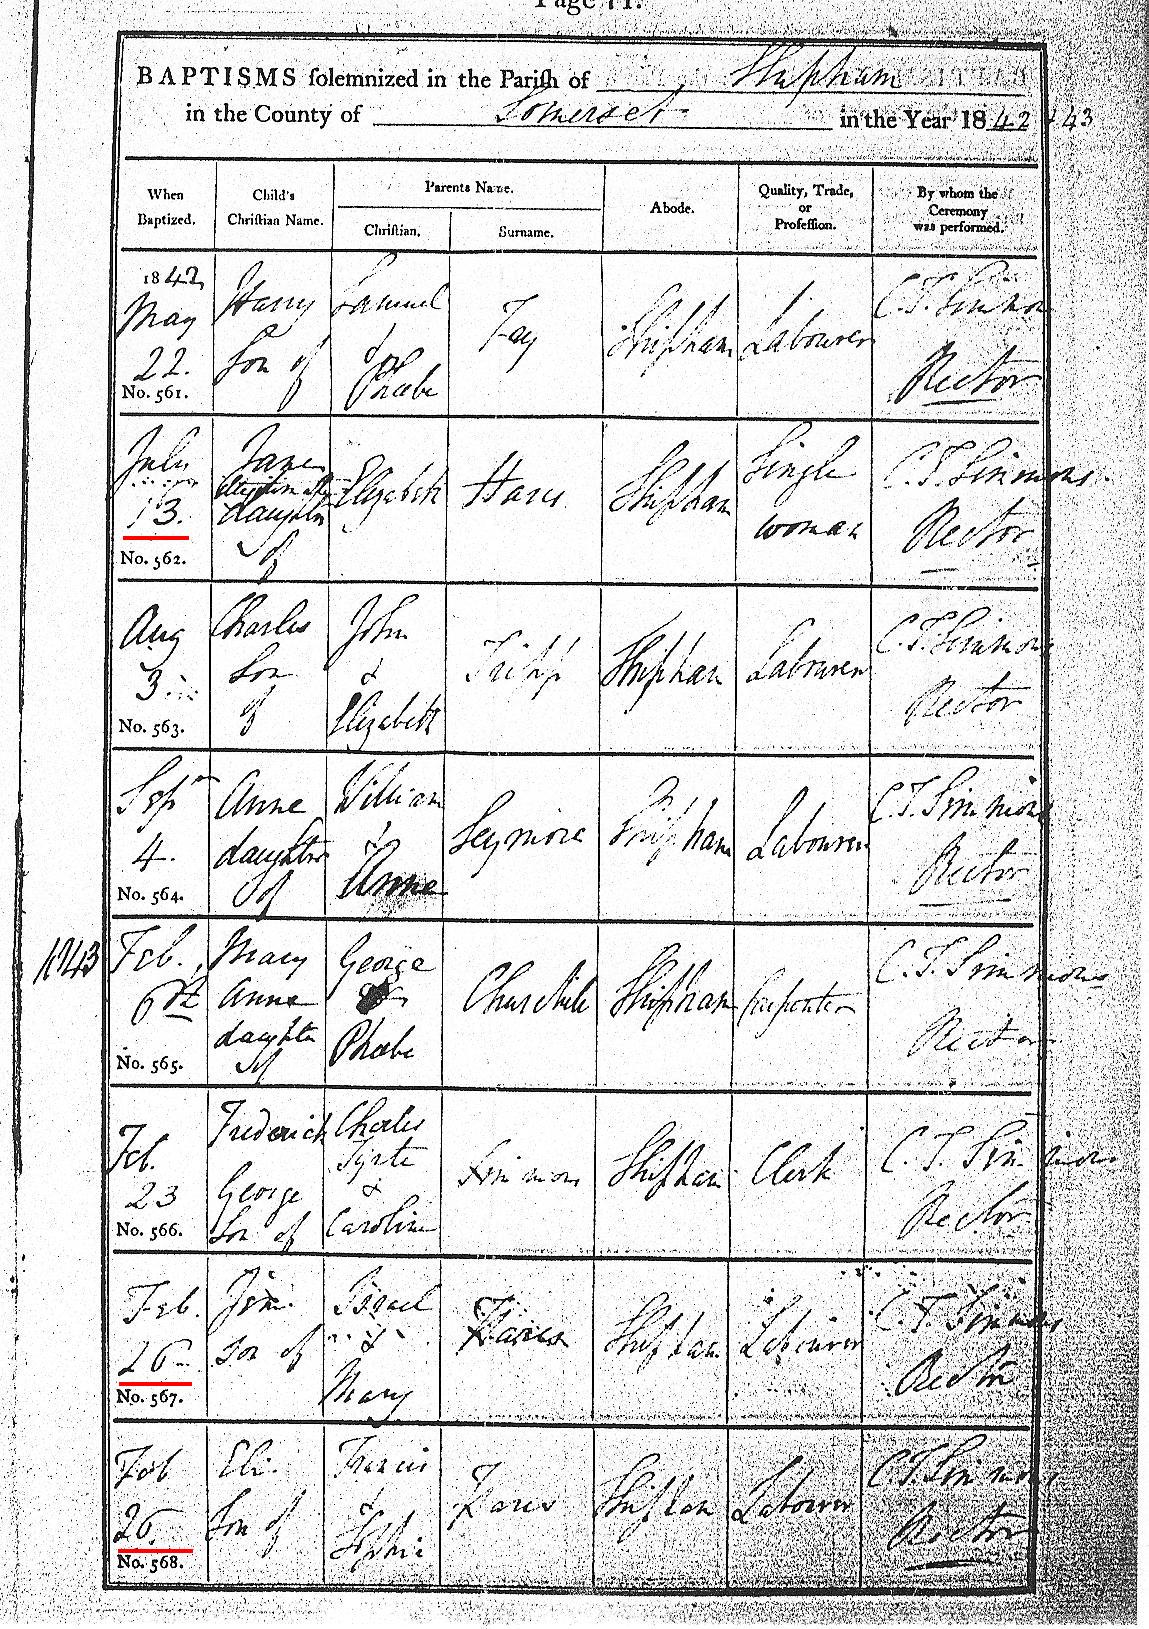 Page 71.
BAPTISMS solemnized in the Parish of Shipham
in the County of Somerset in the Year 1842 & 43
When Baptized.
Child's Christian Name.
Parents Name.
Christian.
Surname.
Abode.
Quality, Trade, or Profession.
By whom the Ceremony was performed.
1842
May
22.
No. 561.
Harry
Son of
Samuel
&
Phœbe
Fay
Shipham
Labourer
C. T. Simmons
Rector
July
13.
No. 562.
Jane
daughter
of
Elizabeth
Hares
Shipham
Single
woman
C. T. Simmons
Rector
Aug
3
No. 563.
Charles
Son
of
John
&
Elizabeth
Tripp
Shipham
Labourer
C. T. Simmons
Rector
Sepr
4.
No. 564.
Anne
daughter
of
William
&
Anne
Seymore
Shipham
Labourer
C. T. Simmons
Rector
1843
Feb.
No. 565.
Mary
Anne
daughter
of
George
&
Phœbe
Churchill
Shipham
Carpenter
C. T. Simmons
Rector
Feb.
23
No. 566.
Frederick
George
Son of
Charles
&
Caroline
Simmons
Shipham
Clerk
C. T. Simmons
Rector
Feb.
26
No. 567.
Jim
Son of
Israel
&
Mary
Hares
Shipham
Labourer
C. T. Simmons
Rector
Feb
26
No. 568.
Eli
Son of
Francis
&
Sophia
Hares
Shipham
Labourer
C. T. Simmons
Rector